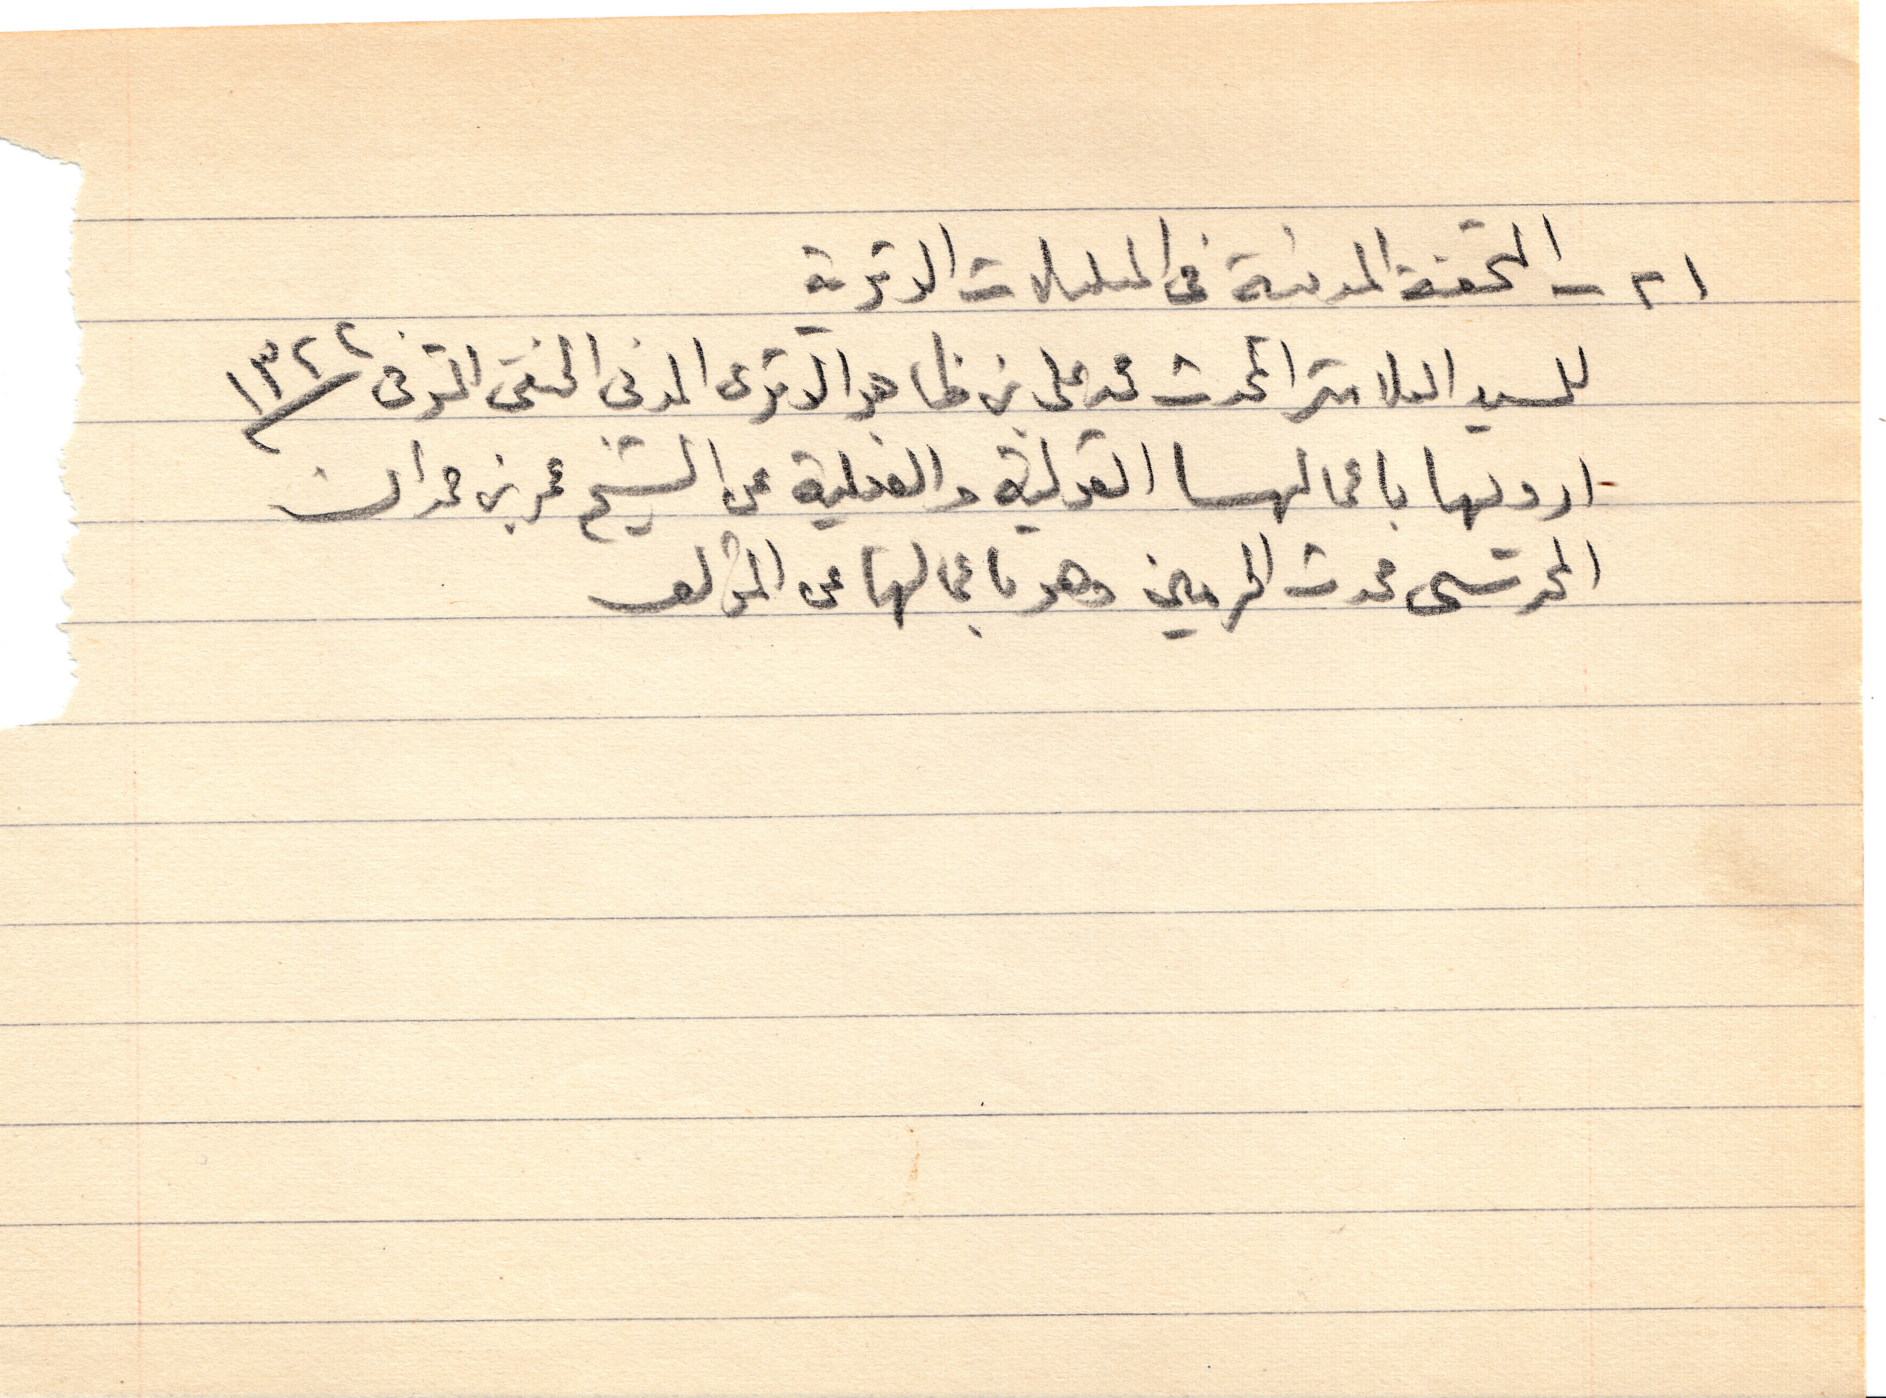 ٢١ – التحفة المدنية في المسلسلات الوترية
للسيد العلامة المحدث محمد علي بن ظاهر الوترى المدني الحنفي المتوفى ١٣٢٢
ارويها باعمالها القولية والفعلية عن الشيخ عمر بن حمدان
المحرسي محدث الحرمين وهو باعمالها عن المؤلف